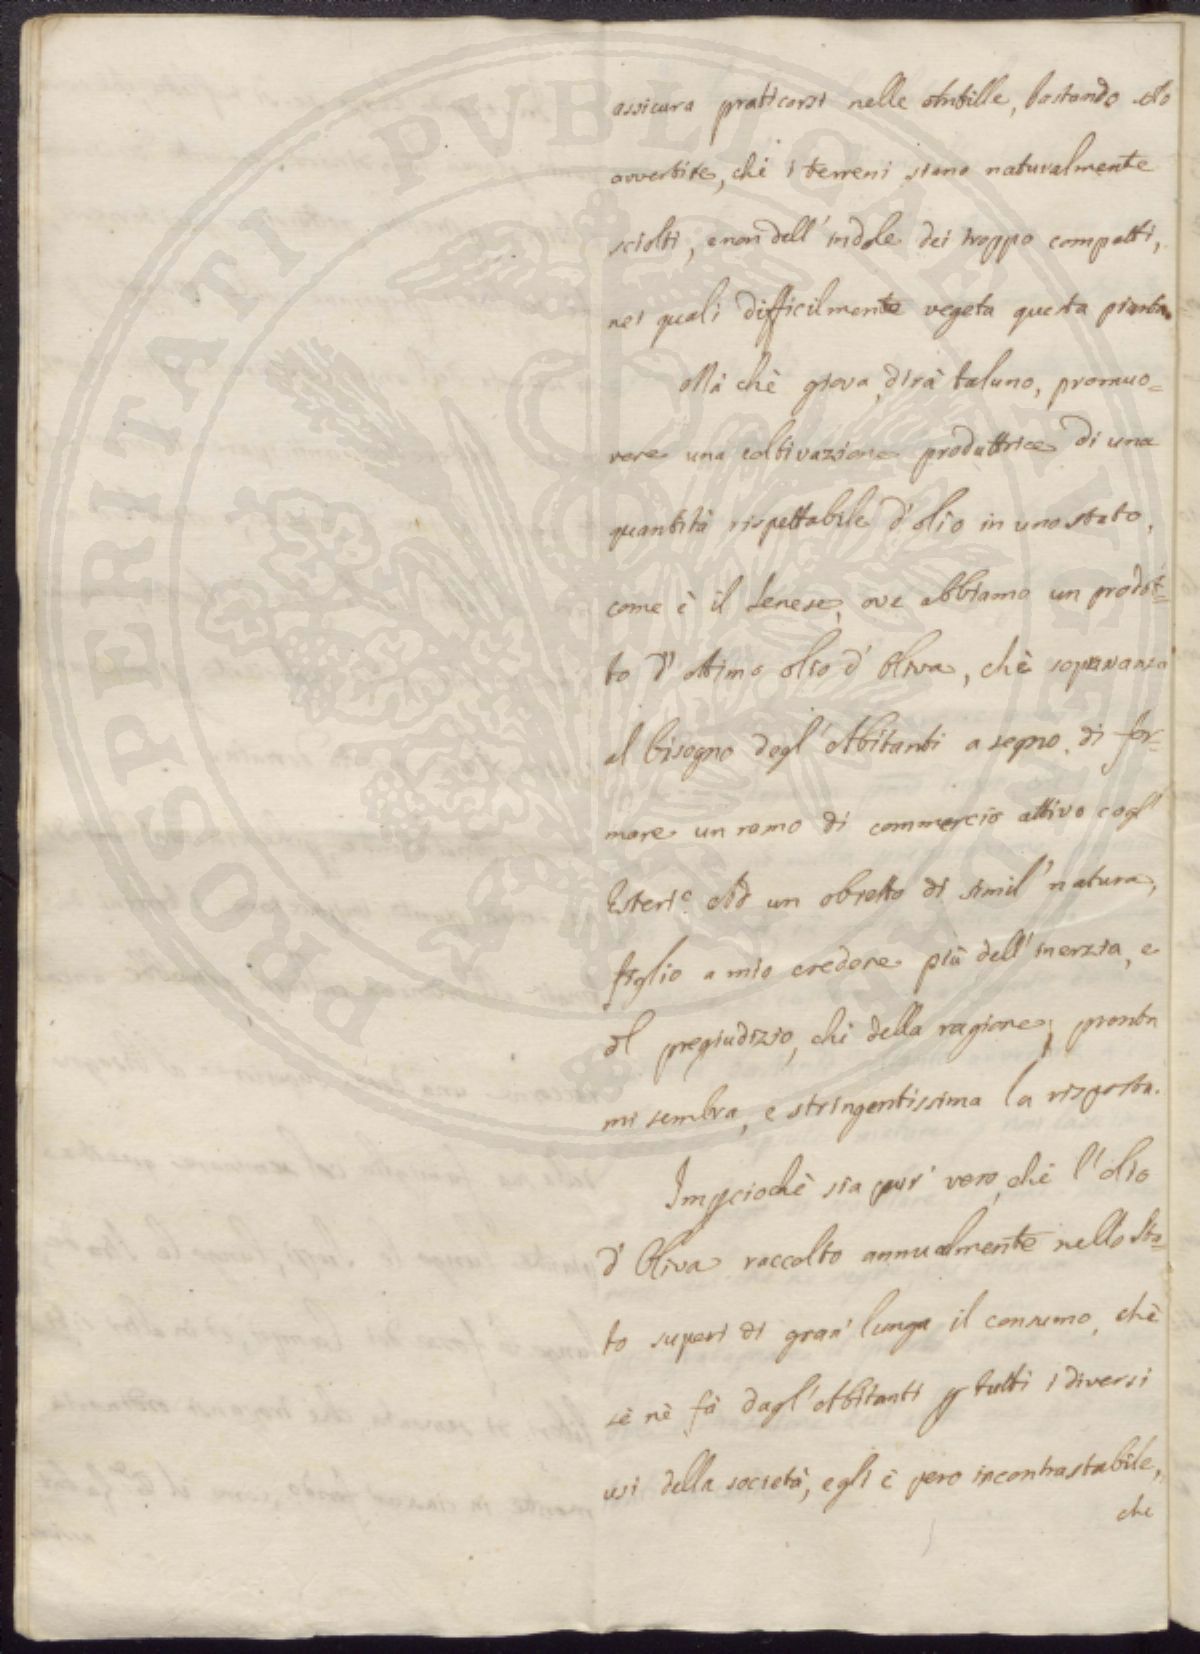 PROSPERITATI PVBLICAE AVGENDAE
assicura praticarsi nelle Antille, bastando solo
avvertire, chè i terreni siano naturalmente
sciolti, e non dell' indole dei troppo compatti,
nei quali difficilmente vegeta questa pianta.
Ma chè giova, dirà taluno, promuo=
vere una coltivazione produttrice di una
quantità rispettabile d'olio in uno stato,
come è il Senese, ove abbiamo un prodot=
to d' ottimo olio d' Oliva, chè sopravanza
al bisogno degl' Abitanti a segno di for=
mare un ramo di commercio attivo cogl'
Esteri? Ad un obietto di simil' natura,
figlio a mio credere più dell' inerzia, e
del pregiudizio, chè della ragione, pronta
mi sembra, e stringentissima la risposta.
Imperciochè sia pur' vero, chè l' olio
d' Oliva raccolto annualmente nello Sta=
to superi di gran' lunga il consumo, chè
sè nè fà dagl' Abitanti per tutti i diversi
usi della società, egli è vero incontrastabile,
che